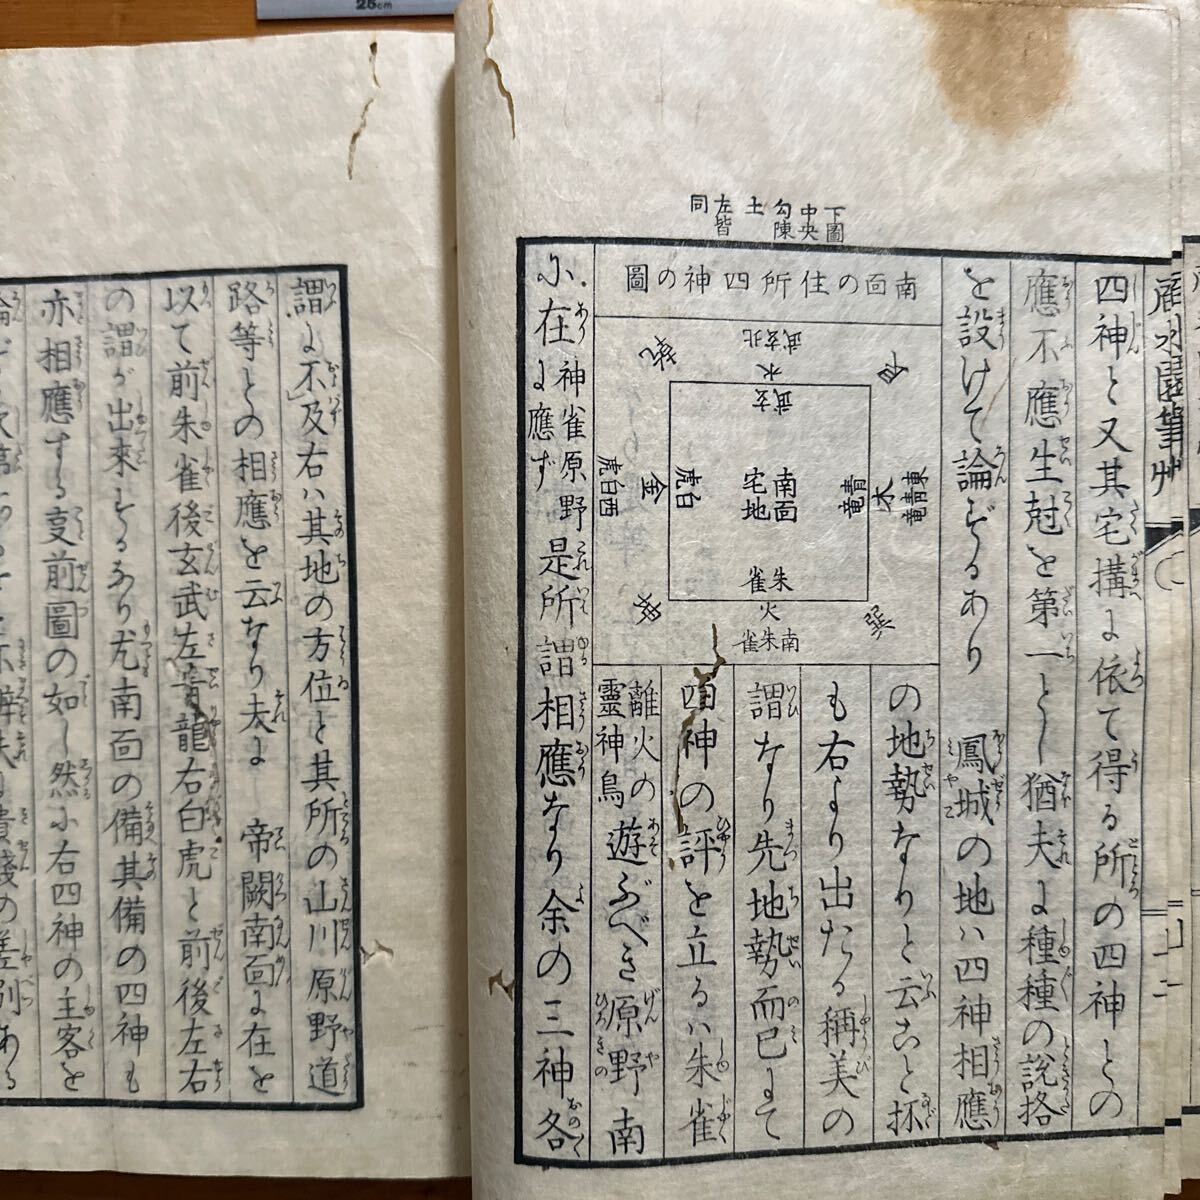 25cm
下圖
中央
勾陳
土
左皆
同
雁水園筆艸
四神と又其宅搆に依て得る所の四神との
應不應生尅を第一とし猶夫に種種の説挌
を設けて論ずるあり　鳳城の地ハ四神相應
の地勢なりと云こと抔
も右より出たる稱美の
謂なり先地勢而已にて
四神の評を立るハ朱雀
離火の靈神鳥遊ぶべき原野南
南面の住所四神の圖
北玄武
水
玄武
乾
艮
西白虎
金
白虎
南面宅地
青竜
木
東青竜
朱雀
火
南朱雀
坤
巽
に在神雀原野に應ず是所謂相應なり余の三神各
謂に不及右ハ其地の方位と其所の山川原野道
路等との相應を云なり夫に　帝闕南面に在を
以て前朱雀後玄武左青龍右白虎と前後左右
の謂が出來するあり尤南面の備其備の四神も
亦相應する支前圖の如し然に右四神の主客を